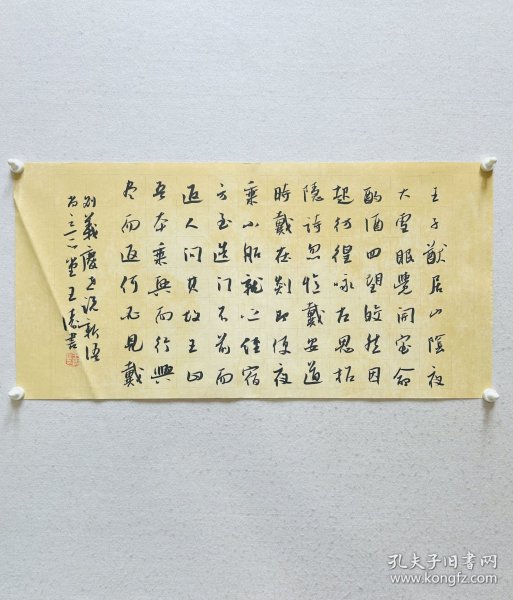 王子猷居山陰夜
大雪眠覺開室命
酌酒四望皎然因
起彷徨咏左思招
隱詩忽憶戴安道
時戴在剡即便夜
乘小船就之經宿
方至造门不前而
返人问其故王曰
吾本乘興而行興
尽而返何必見戴
刘義慶世说新语
王濤書
孔夫子旧书网
www.kongfz.com